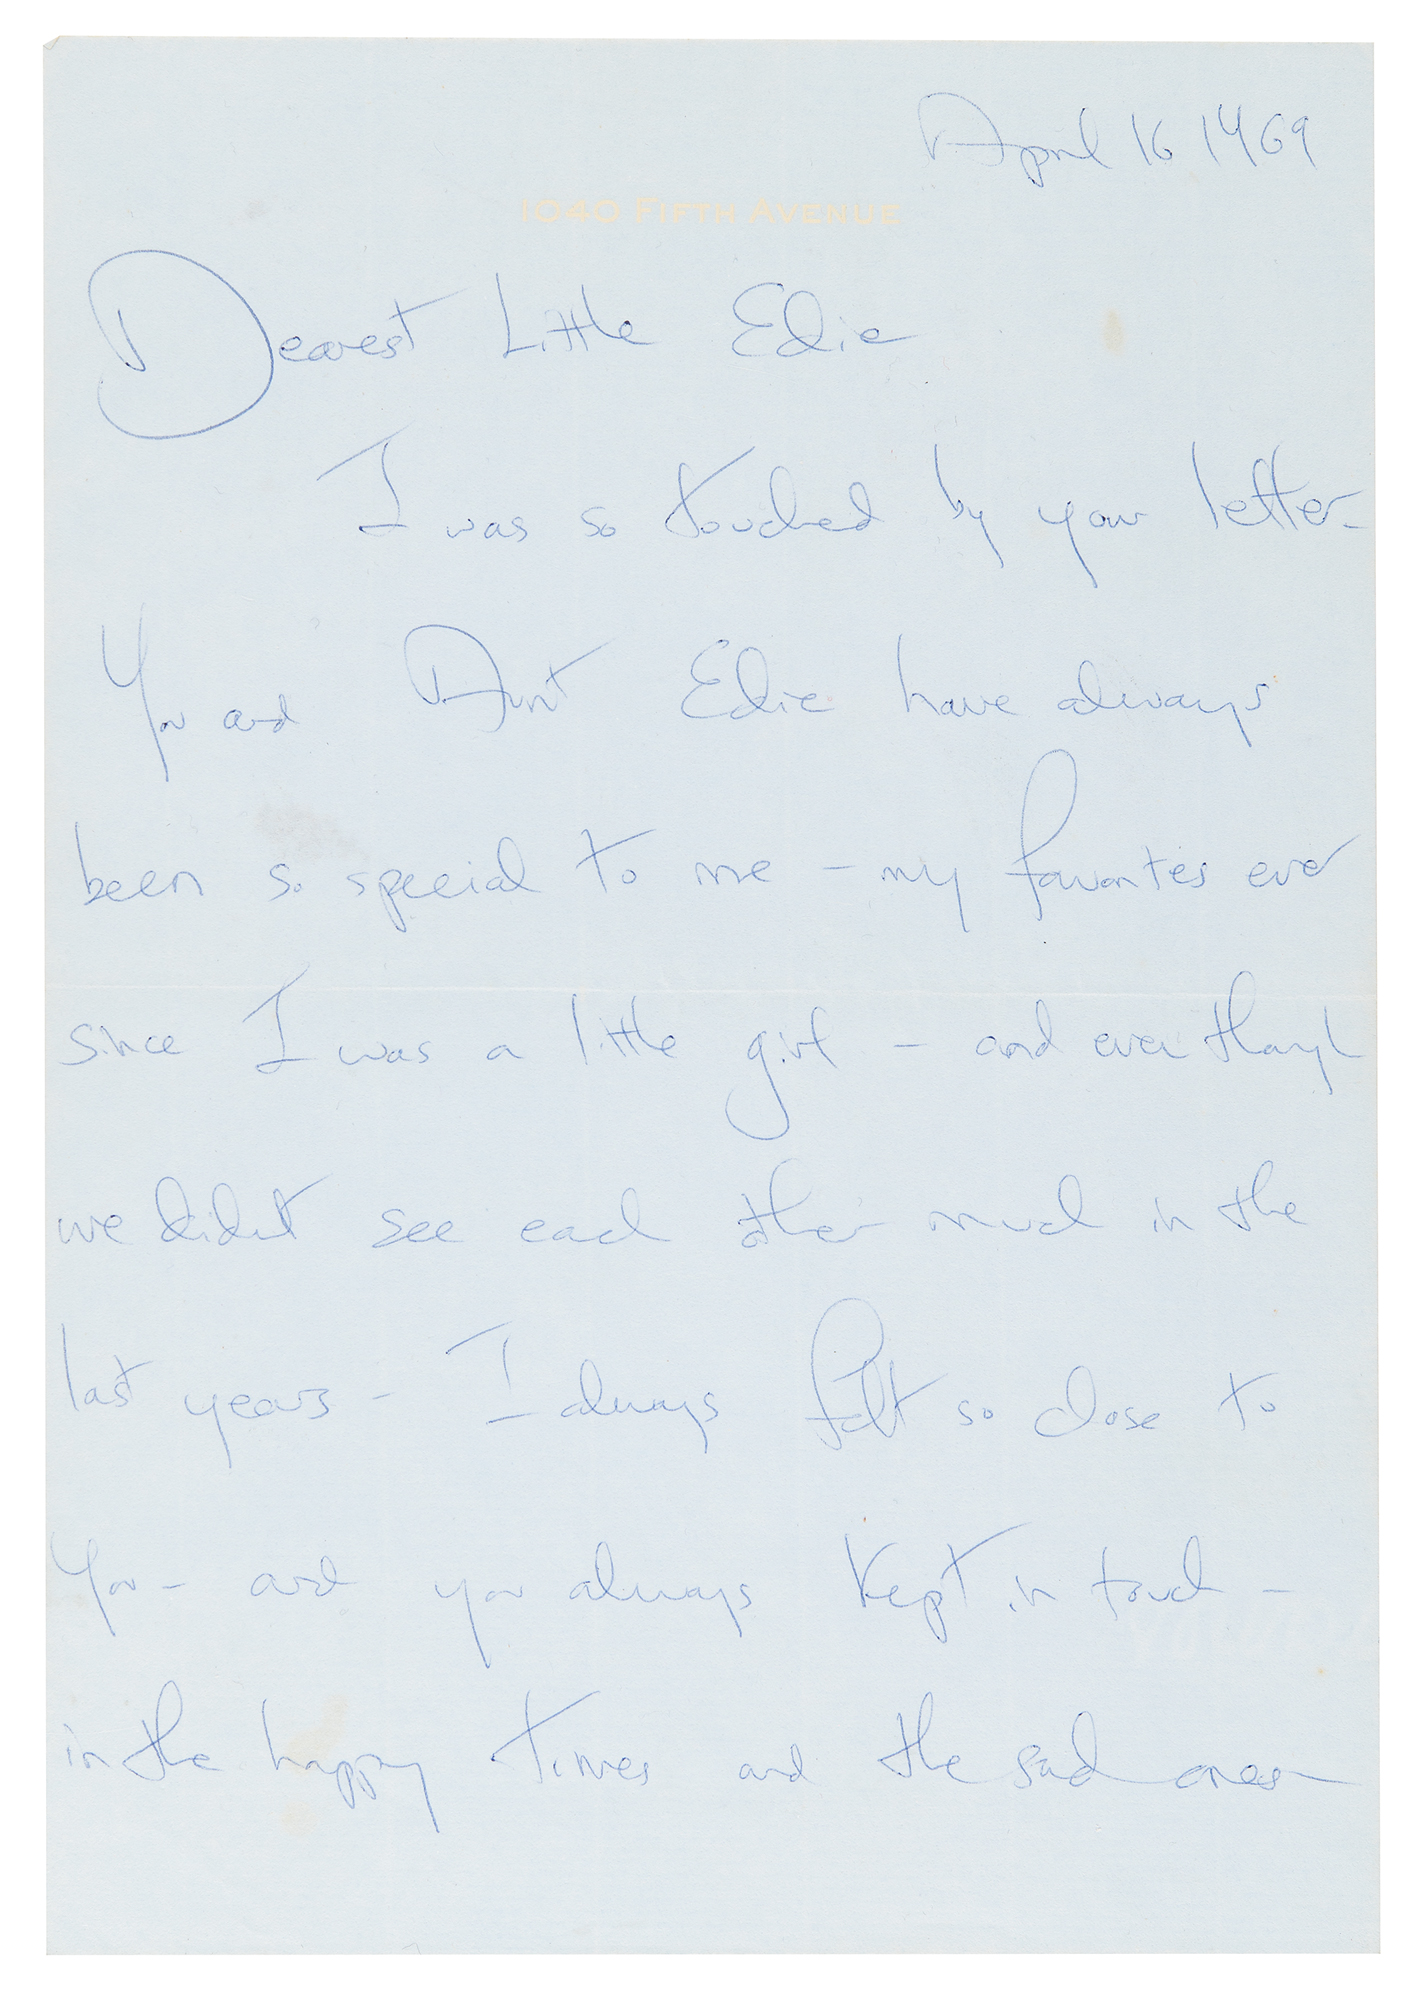 April 16 1969
1040 FIFTH AVENUE
Dearest Little Edie
I was so touched by your letter -
You and Aunt Edie have always
been so special to me - my favorites ever
since I was a little girl - and even though
we didn't see each other much in the
last years - I always felt so close to
you - and you always kept in touch -
in the happy times and the sad ones -